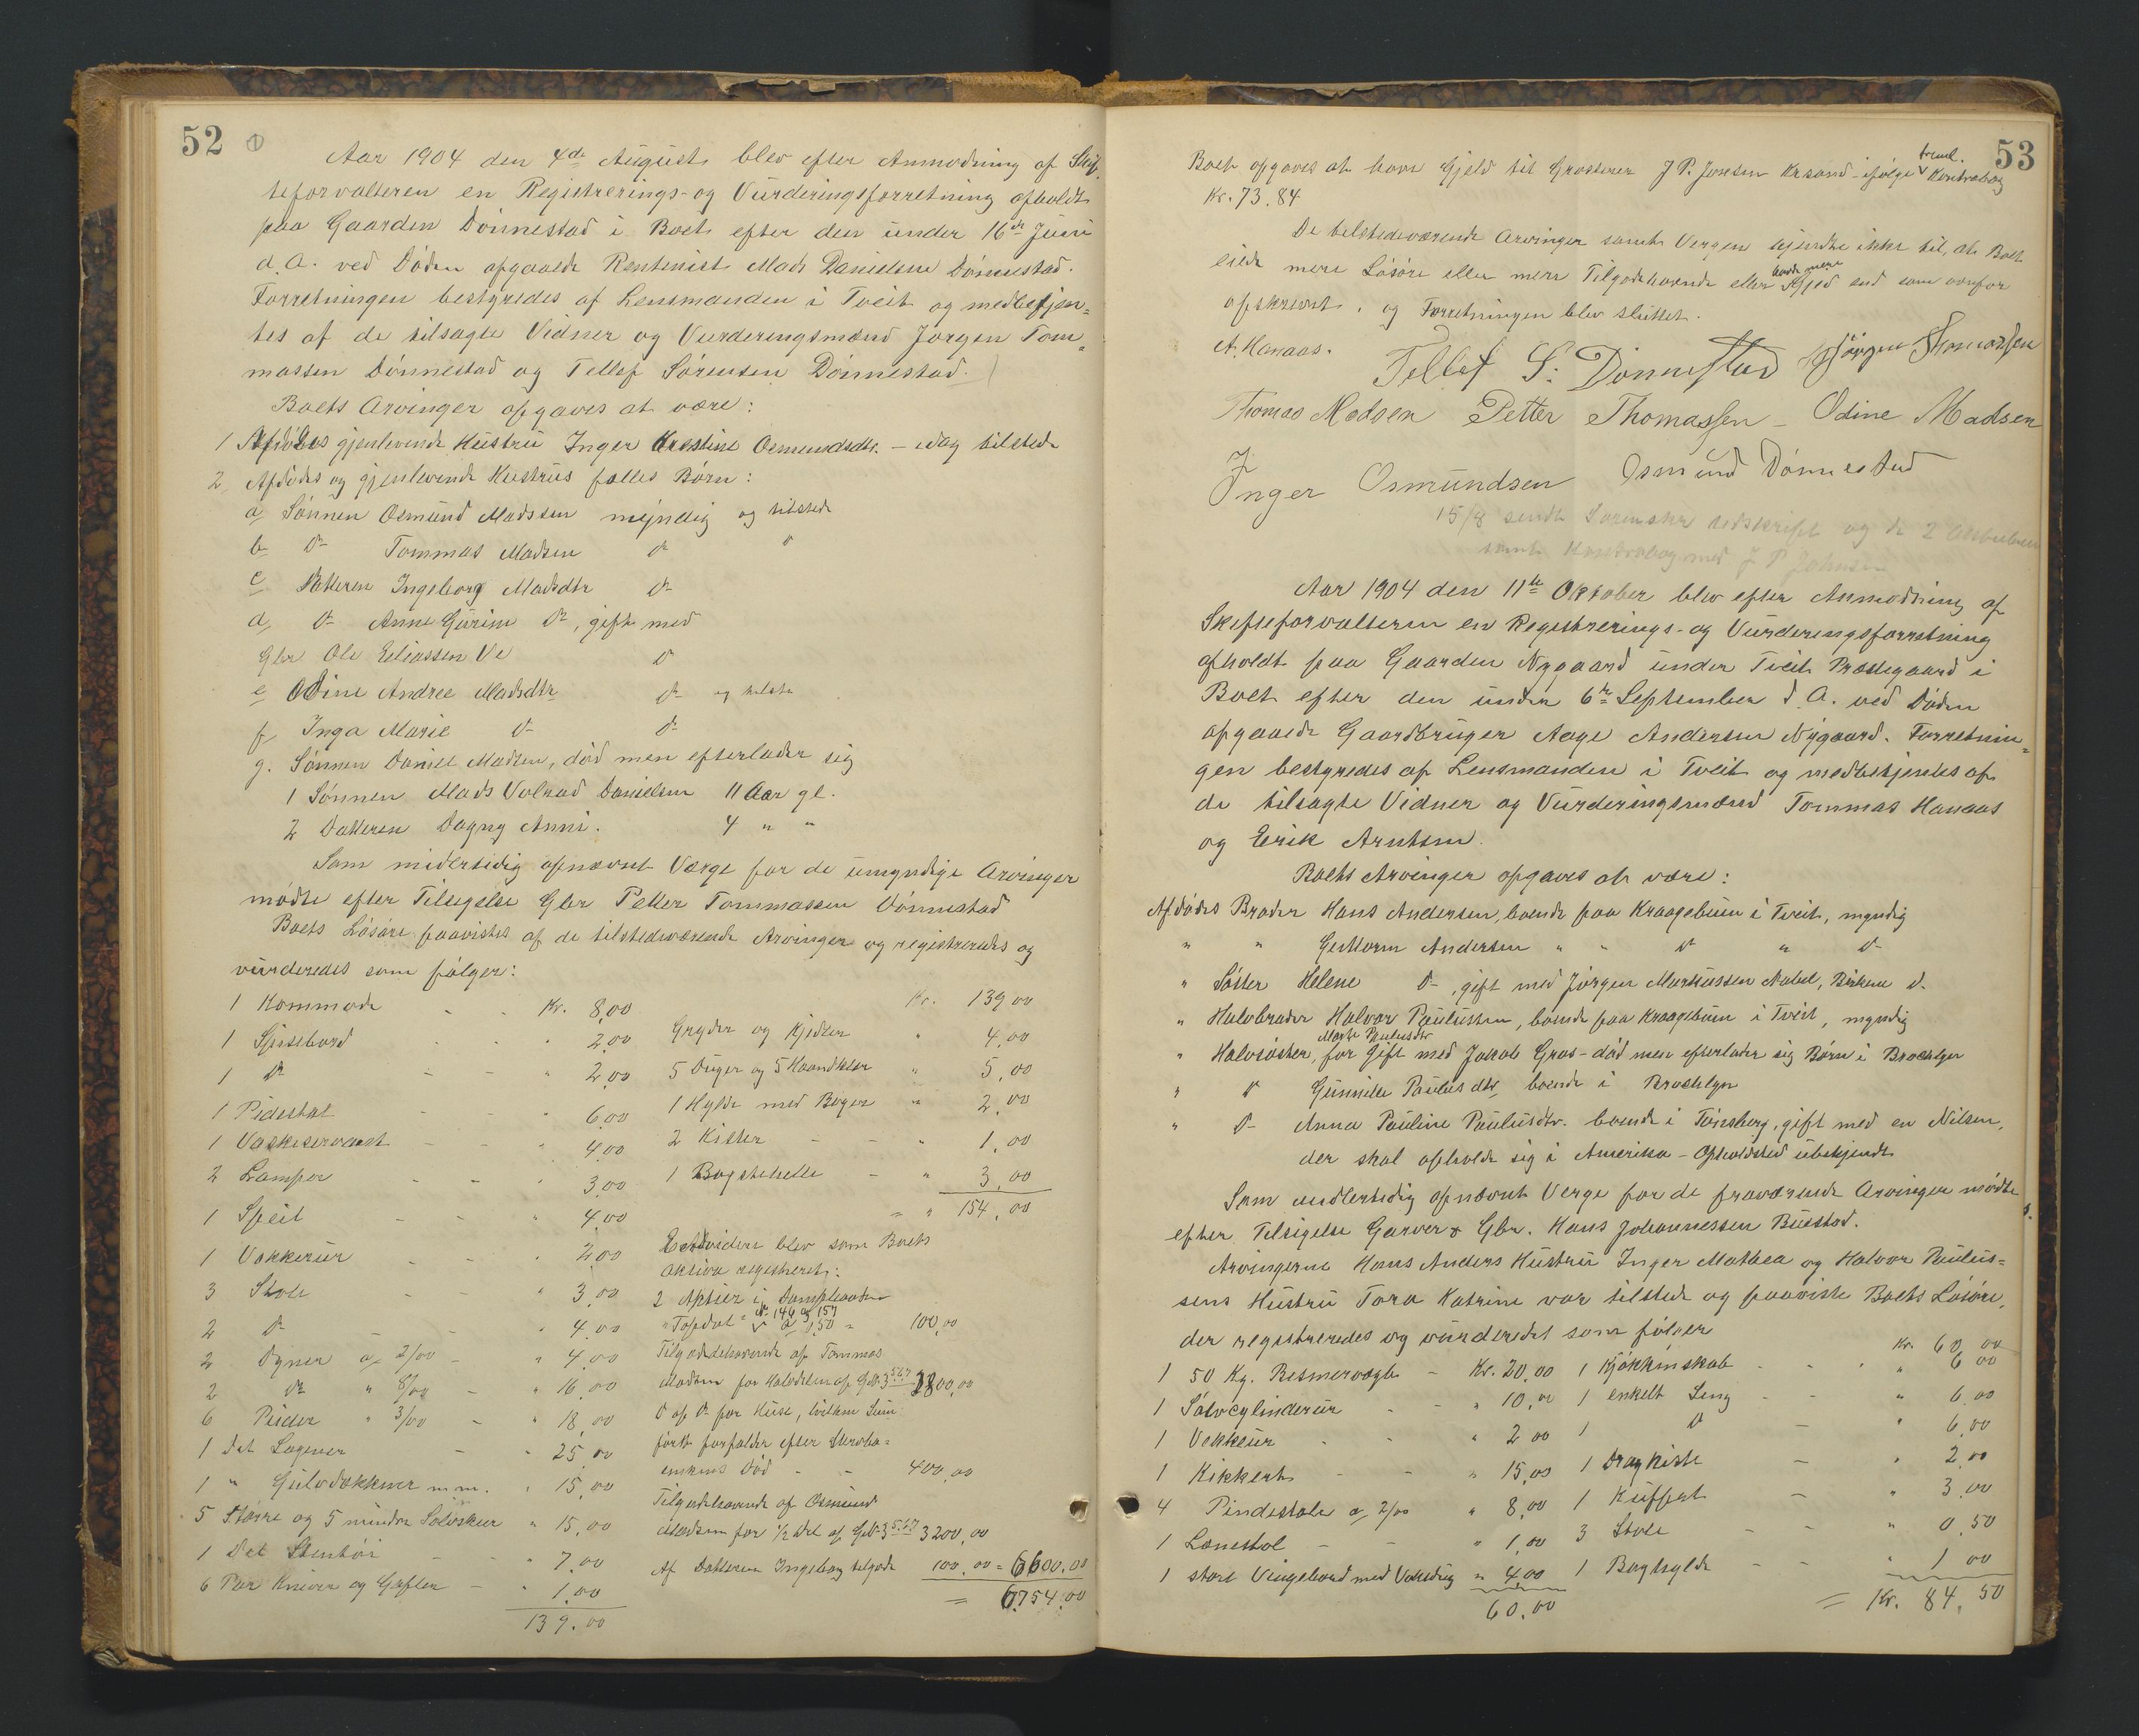 52
Aar 1904 den 4de August blev efter Anmodning af Skif-
teforvalteren en Registrerings- og Vurderingsforretning afholdt
paa Gaarden Dönnestad i Boet efter den under 16de Juni
d. A. ved Döden afgaaede Rentenist Mads Danielsen Dönnestad.
Forretningen bestyredes af Lensmanden i Tveit og medbetjen=
tes af de tilsagte Vidner og Vurderingsmænd Jörgen Tom=
massen Dönnestad og Tellef Sörensen Dönnestad.
Boets Arvinger opgaves at være:
1 Afdödes gjenlevende Hustru Inger Kirstine Osmundsdtr. - idag tilstede
2, Afdödes og gjenlevende Hustrus fælles Börn:
a, Sönnen Osmund Madssen myndig og tilstede
b Do Tommas Madsen do "
c Datteren Ingeborg Madsdtr do
d, do Anne Gurine do, gift med
Gbr Ole Eliassen Ve do
e Odine Andree Madsdtr do og tilste
f, Inga Marie do do
g. Sönnen Daniel Madsen, död men efterlader sig
1 Sönnen Mads Volrad Danielsen 11 Aar gl.
2 Datteren Dagny Anni. 4 " "
Som midlertidig opnævnt Værge for de umyndige Arvinger
mödte efter Tilsigelse Gbr Petter Tommassen Dönnestad
Boets Lösöre paavistes af de tilstedeværende Arvinger og registreredes og
vurderedes som fölger:
1 Kommode - - Kr. 8,00
1 Spisebord - - " 2,00
1 do - - " 2,00
1 Pidestal - - " 6,00
1 Vaskeservant - - " 4,00
2 Lamper - - " 3,00
1 Speil - - " 4,00
1 Vækkerur - - " 2,00
3 Stole - - " 3,00
2 do - - " 4,00
2 Dyner a 2/00 - " 4,00
2 do " 8/00 - " 16,00
6 Puder " 3/00 - " 18,00
1 Del Lagener - " 25,00
1 " Gulvdækkener m.m. " 15,00
5 Större og 5 mindre Sölvskeer " 15,00
1 Del Stentöi - " 7,00
6 Par Kniver og Gafler - " 1,00
139.00
Kr. 139,00
Gryder og Kjedler " 4,00
5 Duger og 5 Haandklær " 5,00
1 Hylde med Bøger " 2,00
2 Kister - - " 1,00
1 Bagstehelle - " 3,00
= " 154,00
Endvidere blev som Boets
Aktiva registreret:
2 Aktier i Dampbaaten
"Topdal" No 146 og 157 a 50 - 100,00
Tilgodehavende af Tommas
Madsen for Halvdelen af Gbr. 3 2800,00
do af do for Huse, hvilken Sum
först forfalder efter Sterbo=
enkens Död - - 400,00
Tilgodehavende af Osmund
Madsen for 1/2 Del af Gbr. 3 3200,00
Af Datteren Ingeborg tilgode 100,00 = 6600,00
= 6754,00
53
Boet opgaves at have Gjeld til Grosserer J P. Jensen Krsand - ifölge freml. Kontrabog
Kr. 73.84
De tilstedeværende Arvinger samt Vergen kjendte ikke til, at Boet
eiede mere Lösöre eller mere Tilgodehavende eller havde mere Gjeld end som ovenfor
opskrevet, og Forretningen blev sluttet.
A. Hanaas.
Tellef S: Dönnestad Jörgen Thomassen
Thomas Madsen Petter Thomassen - Odine Madsen
Inger Osmundsen Osmund Dönnestad
15/8 sendt Sorenskr Udskrift og de 2
samt Kontrabog med J P Johnsen
Aar 1904 den 11te Oktober blev efter Anmodning af
Skifteforvalteren en Registrerings- og Vurderingsforretning
afholdt paa Gaarden Nygaard under Tveit Præstegaard i
Boet efter den under 6te September d. A. ved Döden
afgaaede Gaardbruger Aage Andersen Nygaard. Forretnin=
gen bestyredes af Lensmanden i Tveit og medbetjentes af
de tilsagte Vidner og Vurderingsmænd Tommas Hanaas
og Erik Arntsen.
Boets Arvinger opgaves at være:
Afdödes Broder Hans Andersen, boende paa Kraagebuen i Tveit, myndig
" " Guttorm Andersen " " do " do
" Söster Helene do, gift med Jörgen Markussen Nabel, Birkene do
" Halvbroder Halvor Paulussen, boende paa Kraagebuen i Tveit, myndig
" Halvsöster, Marte Paulusdtr for gift med Jakob Gras - död men efterlader sig Börn i Brooklyn
" do Gunnille Paulusdtr, boende i Brooklyn
" do Anna Pauline Paulusdtr. boende i Tönsberg, gift med en Nilsen,
der skal opholde sig i Amerika - Opholdsted ubekjendt
Som midlertidig opnævnt Verge for de fraværende Arvinger mödte
efter Tilsigelse Garver & Gbr. Hans Johannessen Bustad.
Arvingerne Hans Anders Hustru Inger Mathea og Halvor Paulus=
sens Hustru Tora Katrine var tilstede og paaviste Boets Lösöre,
der registreredes og vurderedes som fölger
1 50 Kg. Bismervægt - Kr. 20,00
1 Sölvcylinderur - - " 10,00
1 Vækkeur - - " 2 00
1 Kikkert - - " 15,00
4 Pindestole a 2/00 " 8,00
1 Lænestol - - " 1,00
1 stort Vingebord med Voksdug " 4,00
60,00
Kr. 60,00
1 Kjökkenskab - - " 6 00
1 enkelt Seng - - " 6,00
1 do - " 6,00
1 Dragkiste - " 2,00
1 Kuffert - " 3,00
3 Stole - - " 0,50
1 Baghylde - - " 1 00
= Kr. 84,50